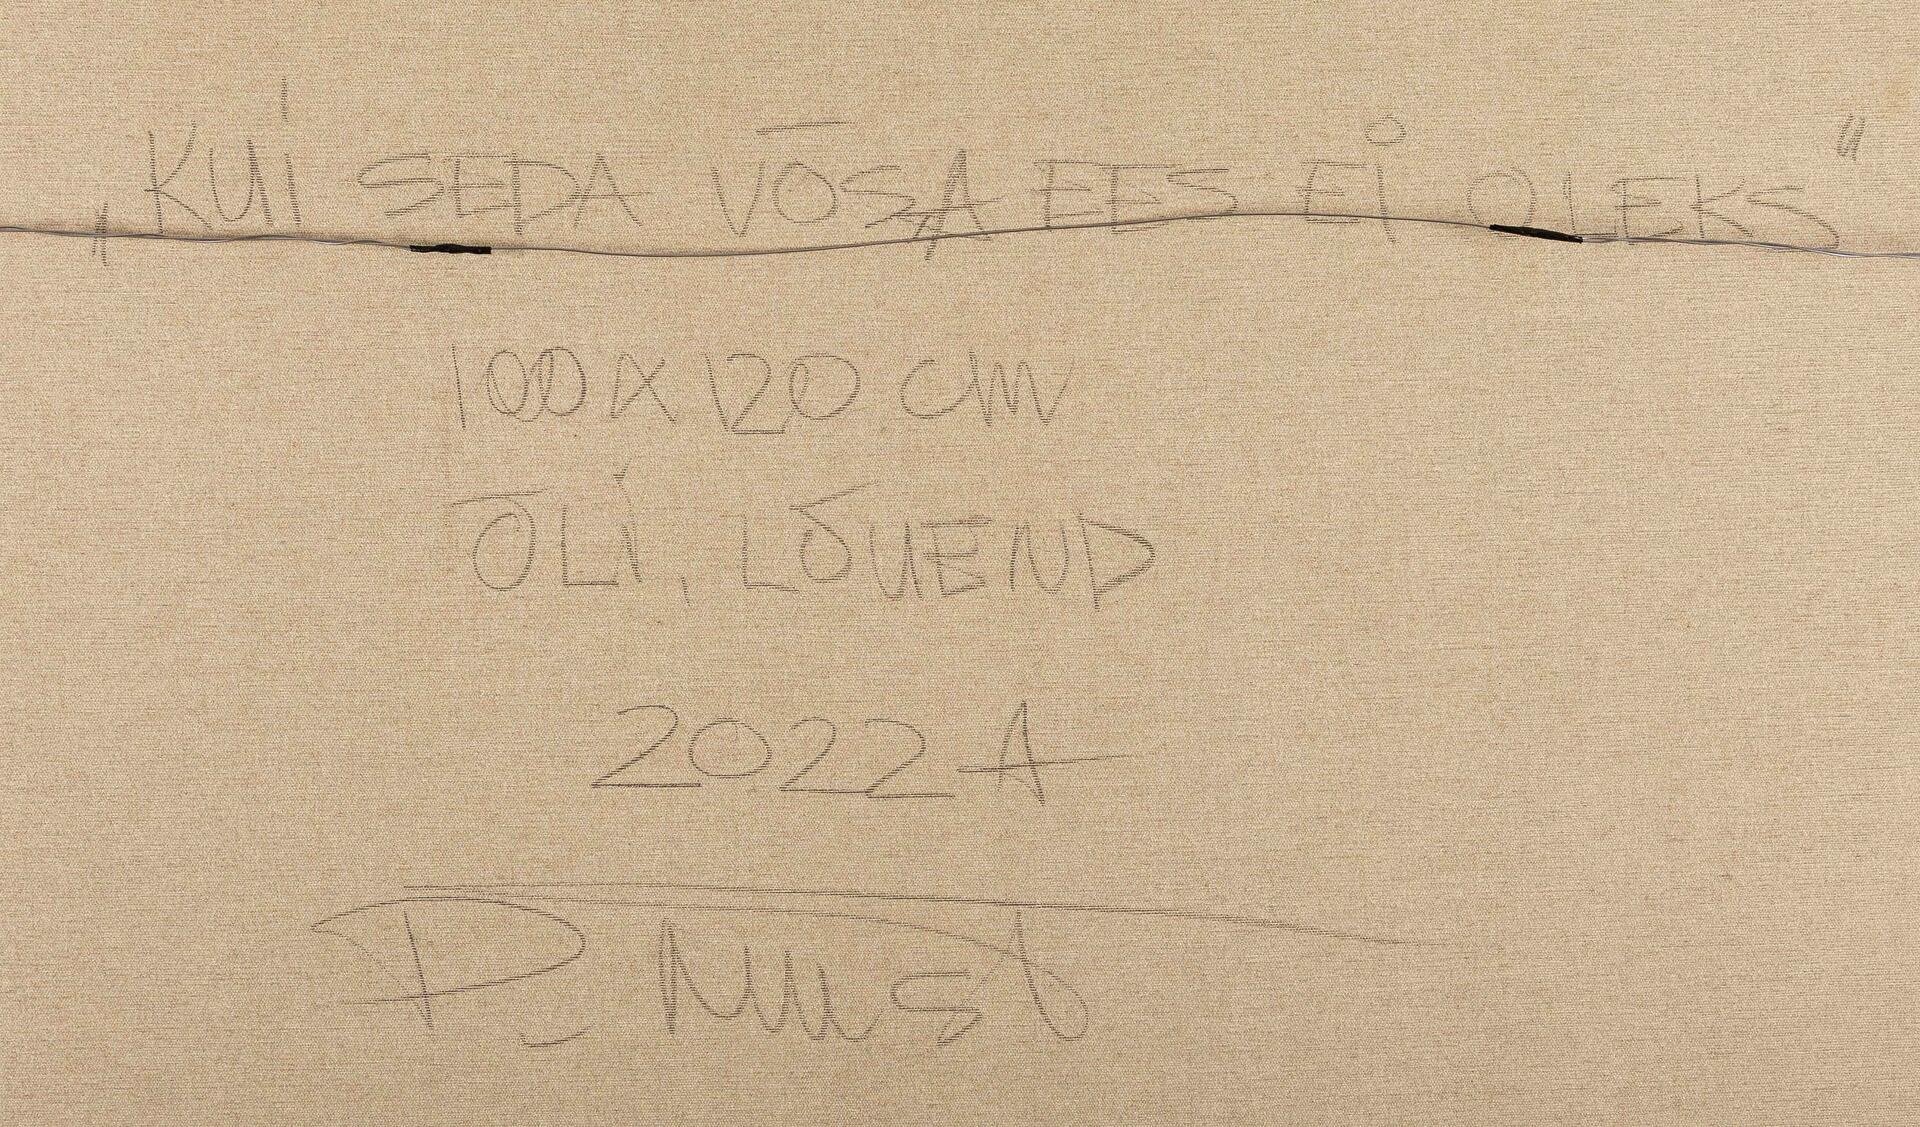 „KUI SEDA VÕSA EES EI OLEKS"
100 X 120 cm
ÕLI, LÕUEND
2022 A
P. Must